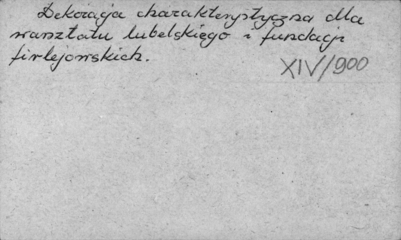 Dekoracja charakterystyczna dla
warsztatu lubelskiego i fundacji
firlejowskich.
XIV/900